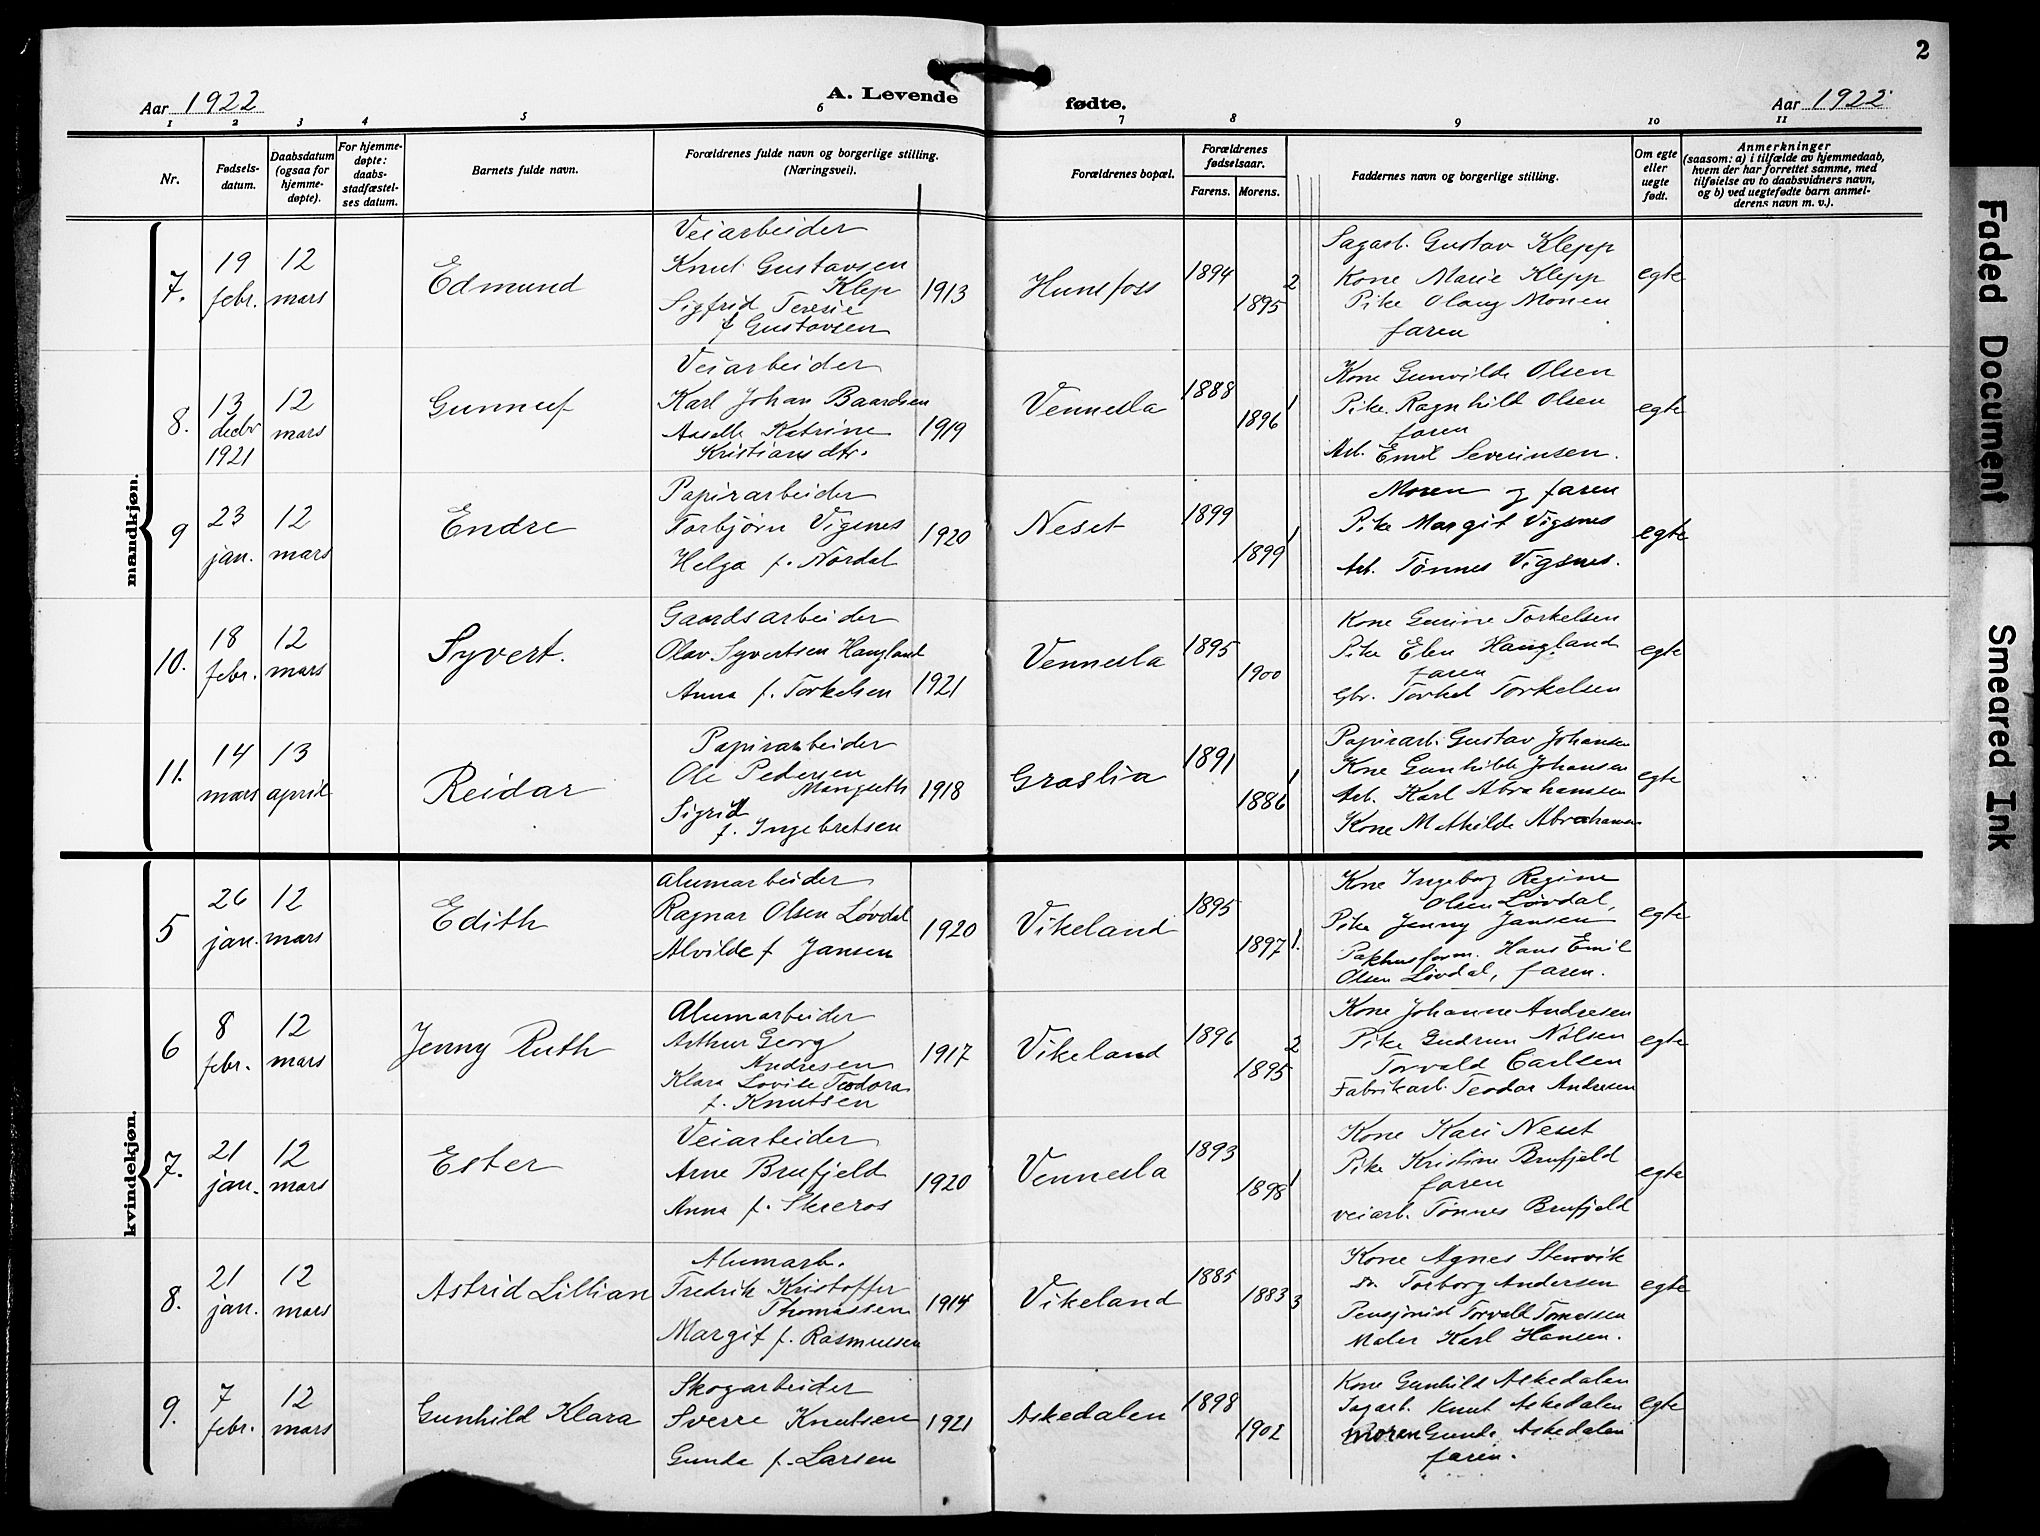 2
Aar 1922
A. Levende
fødte.
Aar 1922
1 2 3 4 5 6 7 8 9 10 11
Nr.
Fødsels-
datum.
Daabsdatum
(ogsaa for
hjemme-
døpte).
For hjemme-
døpte:
daabs-
stadfæstel-
ses datum.
Barnets fulde navn.
Forældrenes fulde navn og borgerlige stilling.
(Næringsvei).
Forældrenes bopæl.
Forældrenes
fødselsaar.
Farens. Morens.
Faddernes navn og borgerlige stilling.
Om egte
eller
uegte
født.
Anmerkninger
(saasom: a) i tilfælde av hjemmedaab,
hvem der har forrettet samme, med
tilføielse av to daabsvidners navn,
og b) ved uegtefødte barn anmel-
derens navn m. v.).
mandkjøn.
7.
19
febr.
12
mars
Edmund
Veiarbeider
Knut Gustavsen
Klep
Sigfrid Teresie
f Gustavsen
1913
Hunsfoss
1894
1895
2
Sagarb. Gustav Klepp
Kone Marie Klepp
Pike Olaug Monen
faren
egte
8.
13
decbr
1921
12
mars
Gunnuf
Veiarbeider
Karl Johan Baardsen
Aaselle Katrine
Kristiansdtr.
1919
Vennesla
1888
1896
1
Kone Gunvilde Olsen
Pike Ragnhild Olsen
faren
Arb. Emil Severinsen.
egte
9
23
jan.
12
mars
Endre
Papirarbeider
Torbjørn Vigsnes
Helga f. Nordal
1920
Neset
1899
1899
1
Moren og faren
Pike Margit Vigsnes
Arb. Tønnes Vigsnes.
egte
10.
18
febr.
12
mars
Syvert.
Gaardsarbeider
Olav Syvertsen Haugland
Anna f. Torkelsen
1921
Vennesla
1895
1900
Kone Gunine Torkelsen
Pike Elen Haugland
faren
Gbr. Torkel Torkelsen
egte
11.
14
mars
13
april
Reidar
Papirarbeider
Ole Pedersen
Sigrid
f. Ingebretsen
1918
Graslia
1891
1886
1
Papirarb. Gustav Johansen
Kone Gunhilde Johansen
Arb. Karl Abrahamsen
Kone Mathilde Abrahamsen
egte
kvindekjøn.
5
26
jan.
12
mars
Edith
Alumarbeider
Ragnar Olsen Løvdal
Alvilde f Jansen
1920
Vikeland
1895
1897
1.
Kone Ingeborg Regine
Olsen Løvdal,
Pike Jenny Jansen
Pakhusform. Hans Emil
Olsen Løvdal, faren.
egte
6
8
febr.
12
mars
Jenny Ruth
Alumarbeider
Arthur Georg
Andresen
Klara Lovise Teodora
f. Knutsen
1917
Vikeland
1896
1895
2
Kone Johanne Andresen
Pike Gudrun Nilsen
Torvald Carlsen
Fabrikarb. Teodor Andresen
egte
7.
21
jan.
12
mars
Ester
Veiarbeider
Arne Brufjeld
Anna f. Skreros
1920
Vennesla
1893
1898
1
Kone Kari Neset
Pike Kristine Brufjeld
faren
veiarb. Tønnes Brufjeld
egte
8.
21
jan.
12
mars
Astrid Lillian
Alumarb.
Fredrik Kristoffer
Thomassen
Margit f. Rasmussen
1914
Vikeland
1885
1883
3
Kone Agnes Stenvik
Torborg Andersen
Torvald Tomassen
Maler Karl Hansen.
egte
9.
7
febr.
12
mars
Gunhild Klara
Skogarbeider
Sverre Knutsen
Gunda f. Larsen
1921
Askedalen
1898
1902
Kone Gunhild Askedalen
Sagarb. Knut Askedalen
moren Gunda Askedalen
faren.
egte
Faded Document
Smeared Ink